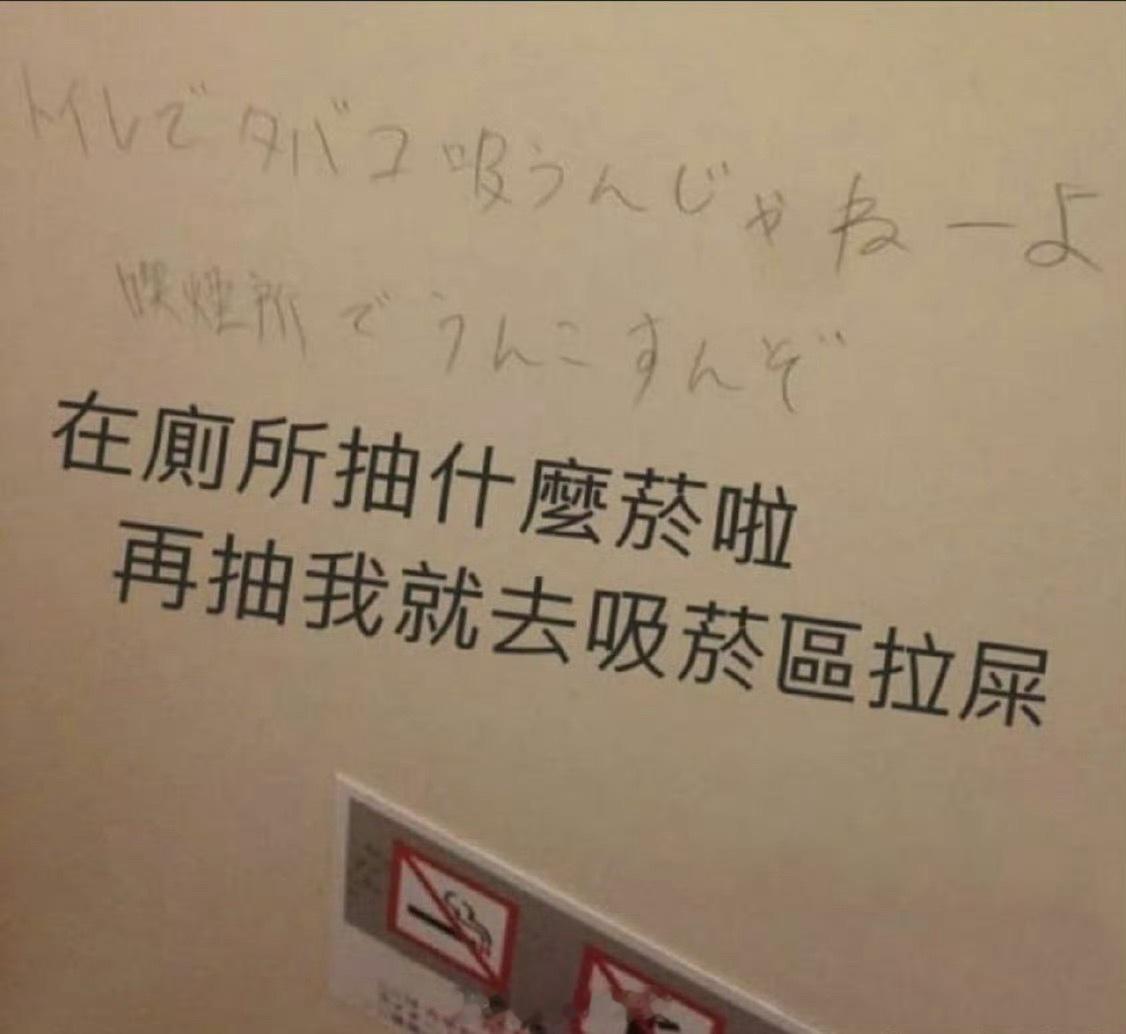 トイレでタバコ吸うんじゃねーよ
喫煙所でうんこすんぞ
在廁所抽什麼菸啦
再抽我就去吸菸區拉屎